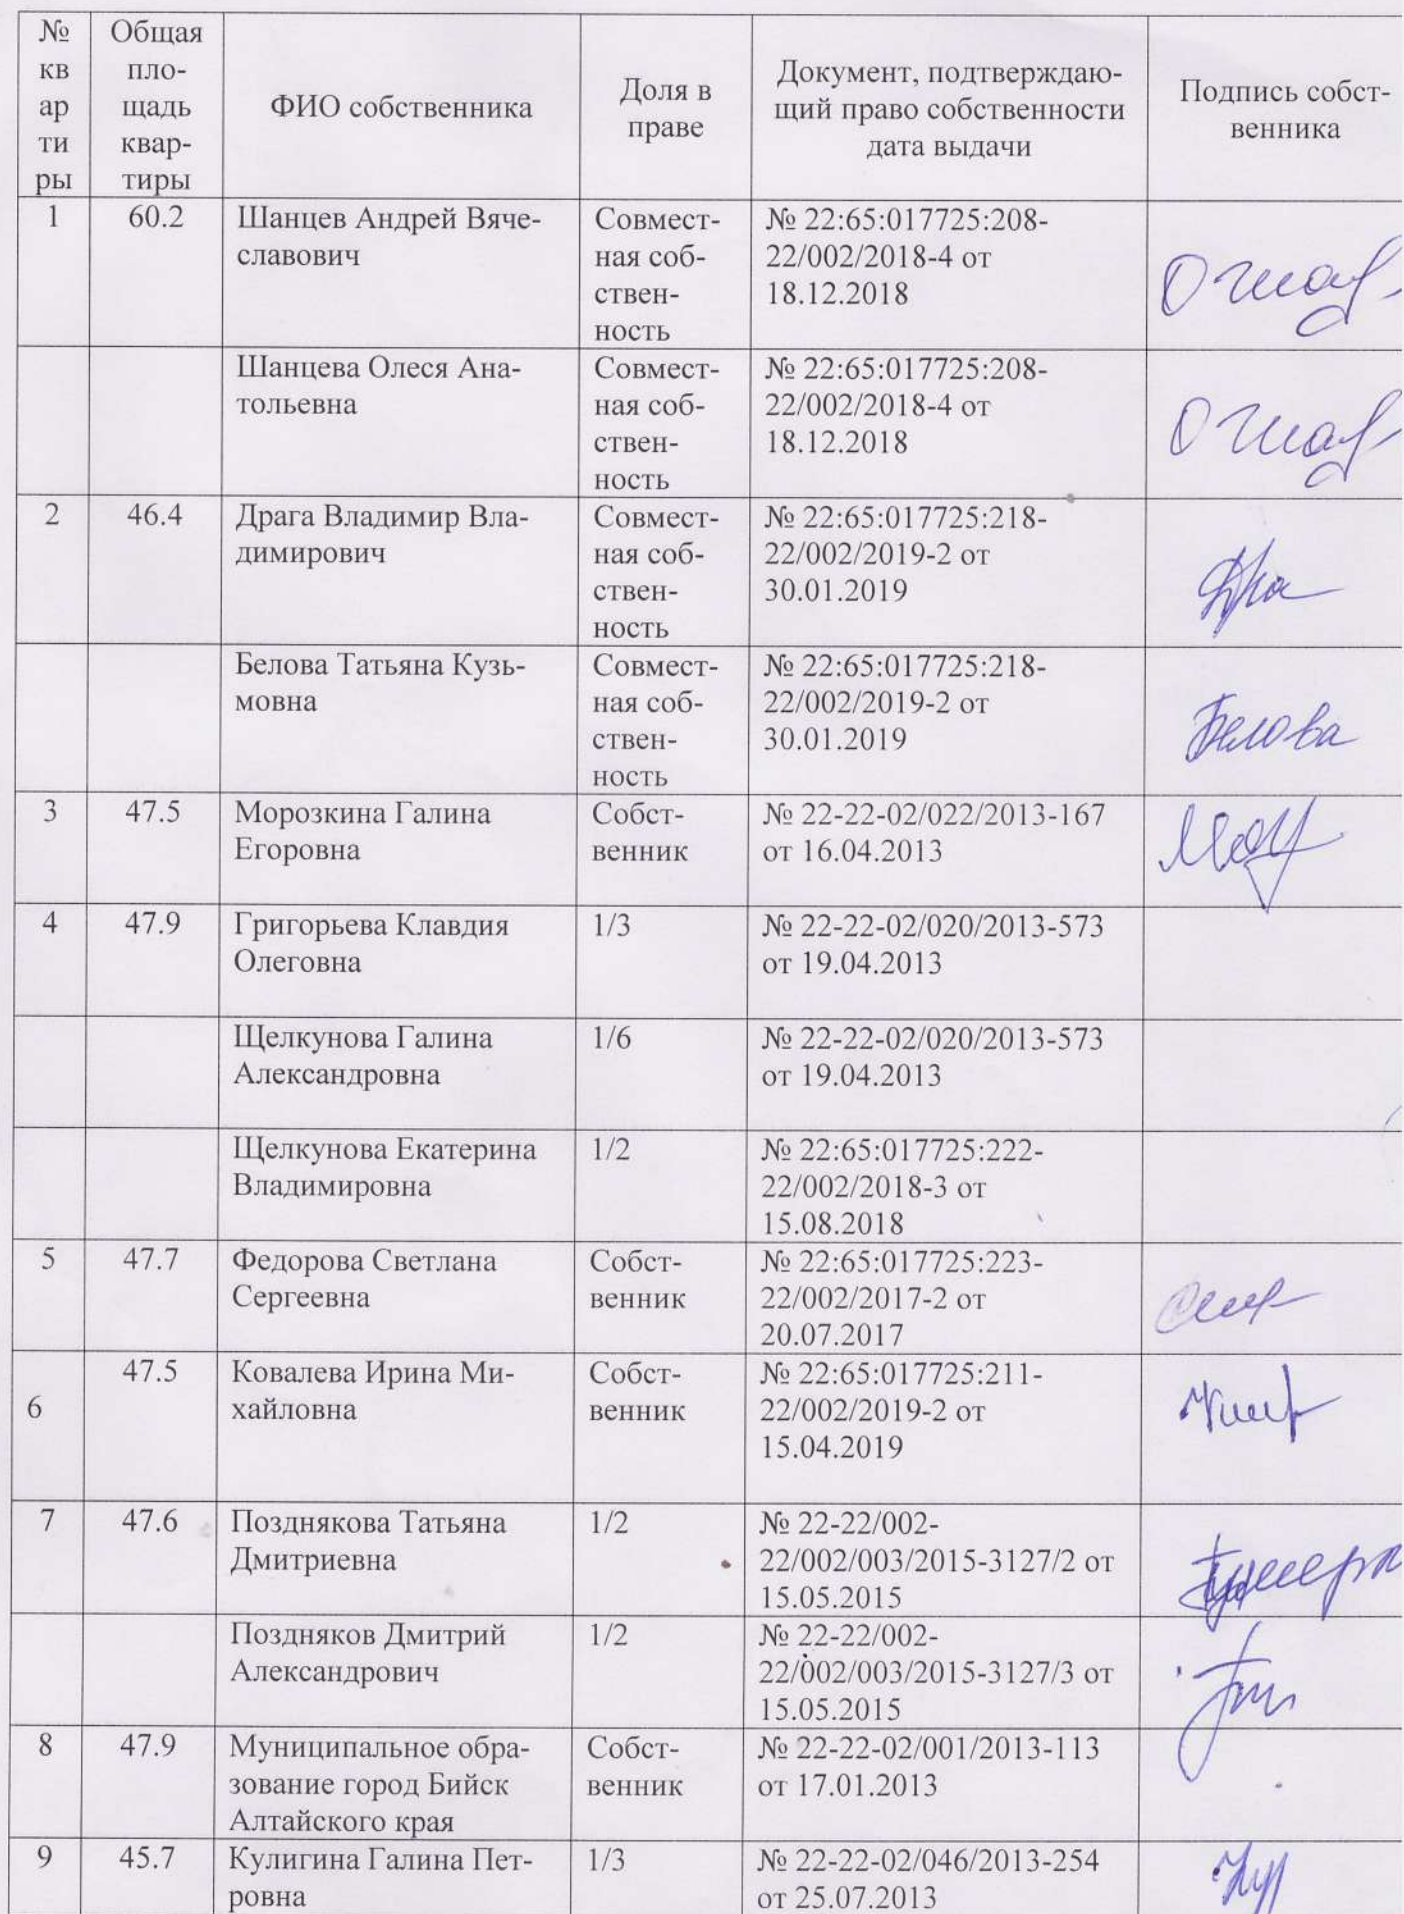 №
кв
ар
ти
ры
Общая
пло-
щадь
квар-
тиры
ФИО собственника
Доля в
праве
Документ, подтверждаю-
щий право собственности
дата выдачи
Подпись собст-
венника
1
60.2
Шанцев Андрей Вяче-
славович
Совмест-
ная соб-
ствен-
ность
№ 22:65:017725:208-
22/002/2018-4 от
18.12.2018
Шанцева Олеся Ана-
тольевна
Совмест-
ная соб-
ствен-
ность
№ 22:65:017725:208-
22/002/2018-4 от
18.12.2018
2
46.4
Драга Владимир Вла-
димирович
Совмест-
ная соб-
ствен-
ность
№ 22:65:017725:218-
22/002/2019-2 от
30.01.2019
Белова Татьяна Кузь-
мовна
Совмест-
ная соб-
ствен-
ность
№ 22:65:017725:218-
22/002/2019-2 от
30.01.2019
Белова
3
47.5
Морозкина Галина
Егоровна
Собст-
венник
№ 22-22-02/022/2013-167
от 16.04.2013
4
47.9
Григорьева Клавдия
Олеговна
1/3
№ 22-22-02/020/2013-573
от 19.04.2013
Щелкунова Галина
Александровна
1/6
№ 22-22-02/020/2013-573
от 19.04.2013
Щелкунова Екатерина
Владимировна
1/2
№ 22:65:017725:222-
22/002/2018-3 от
15.08.2018
5
47.7
Федорова Светлана
Сергеевна
Собст-
венник
№ 22:65:017725:223-
22/002/2017-2 от
20.07.2017
6
47.5
Ковалева Ирина Ми-
хайловна
Собст-
венник
№ 22:65:017725:211-
22/002/2019-2 от
15.04.2019
7
47.6
Позднякова Татьяна
Дмитриевна
1/2
№ 22-22/002-
22/002/003/2015-3127/2 от
15.05.2015
Поздняков Дмитрий
Александрович
1/2
№ 22-22/002-
22/002/003/2015-3127/3 от
15.05.2015
8
47.9
Муниципальное обра-
зование город Бийск
Алтайского края
Собст-
венник
№ 22-22-02/001/2013-113
от 17.01.2013
9
45.7
Кулигина Галина Пет-
ровна
1/3
№ 22-22-02/046/2013-254
от 25.07.2013